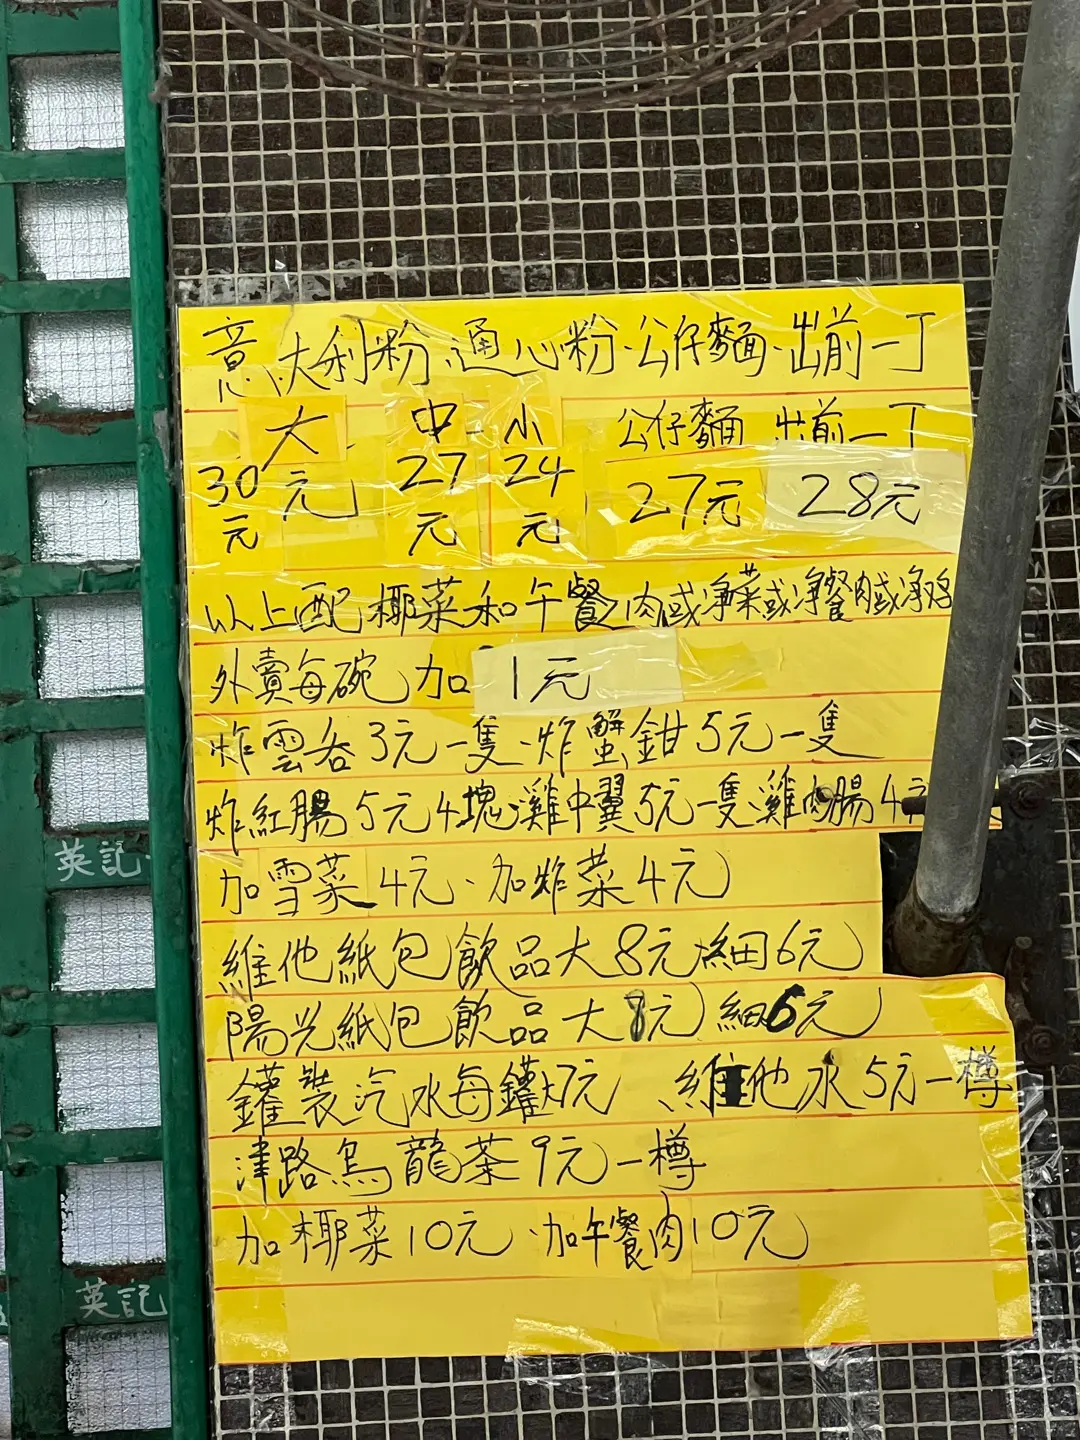 意大利粉.通心粉.公仔麵.出前一丁
大 中 小 公仔麵 出前一丁
30元 元 27元 24元 27元 28元
以上配椰菜和午餐肉或淨菜或淨餐肉或淨鸡
外賣每碗加1元
炸雲吞3元一隻、炸蟹鉗5元一隻
炸紅腸5元4塊、雞中翼5元一隻、雞肉腸4元
加雪菜4元、加炸菜4元
維他紙包飲品大8元細6元
陽光紙包飲品大8元細6元
鑵裝汽水每鑵大7元、維他水5元一樽
津路烏龍茶9元一樽
加椰菜10元、加午餐肉10元
英記
英記